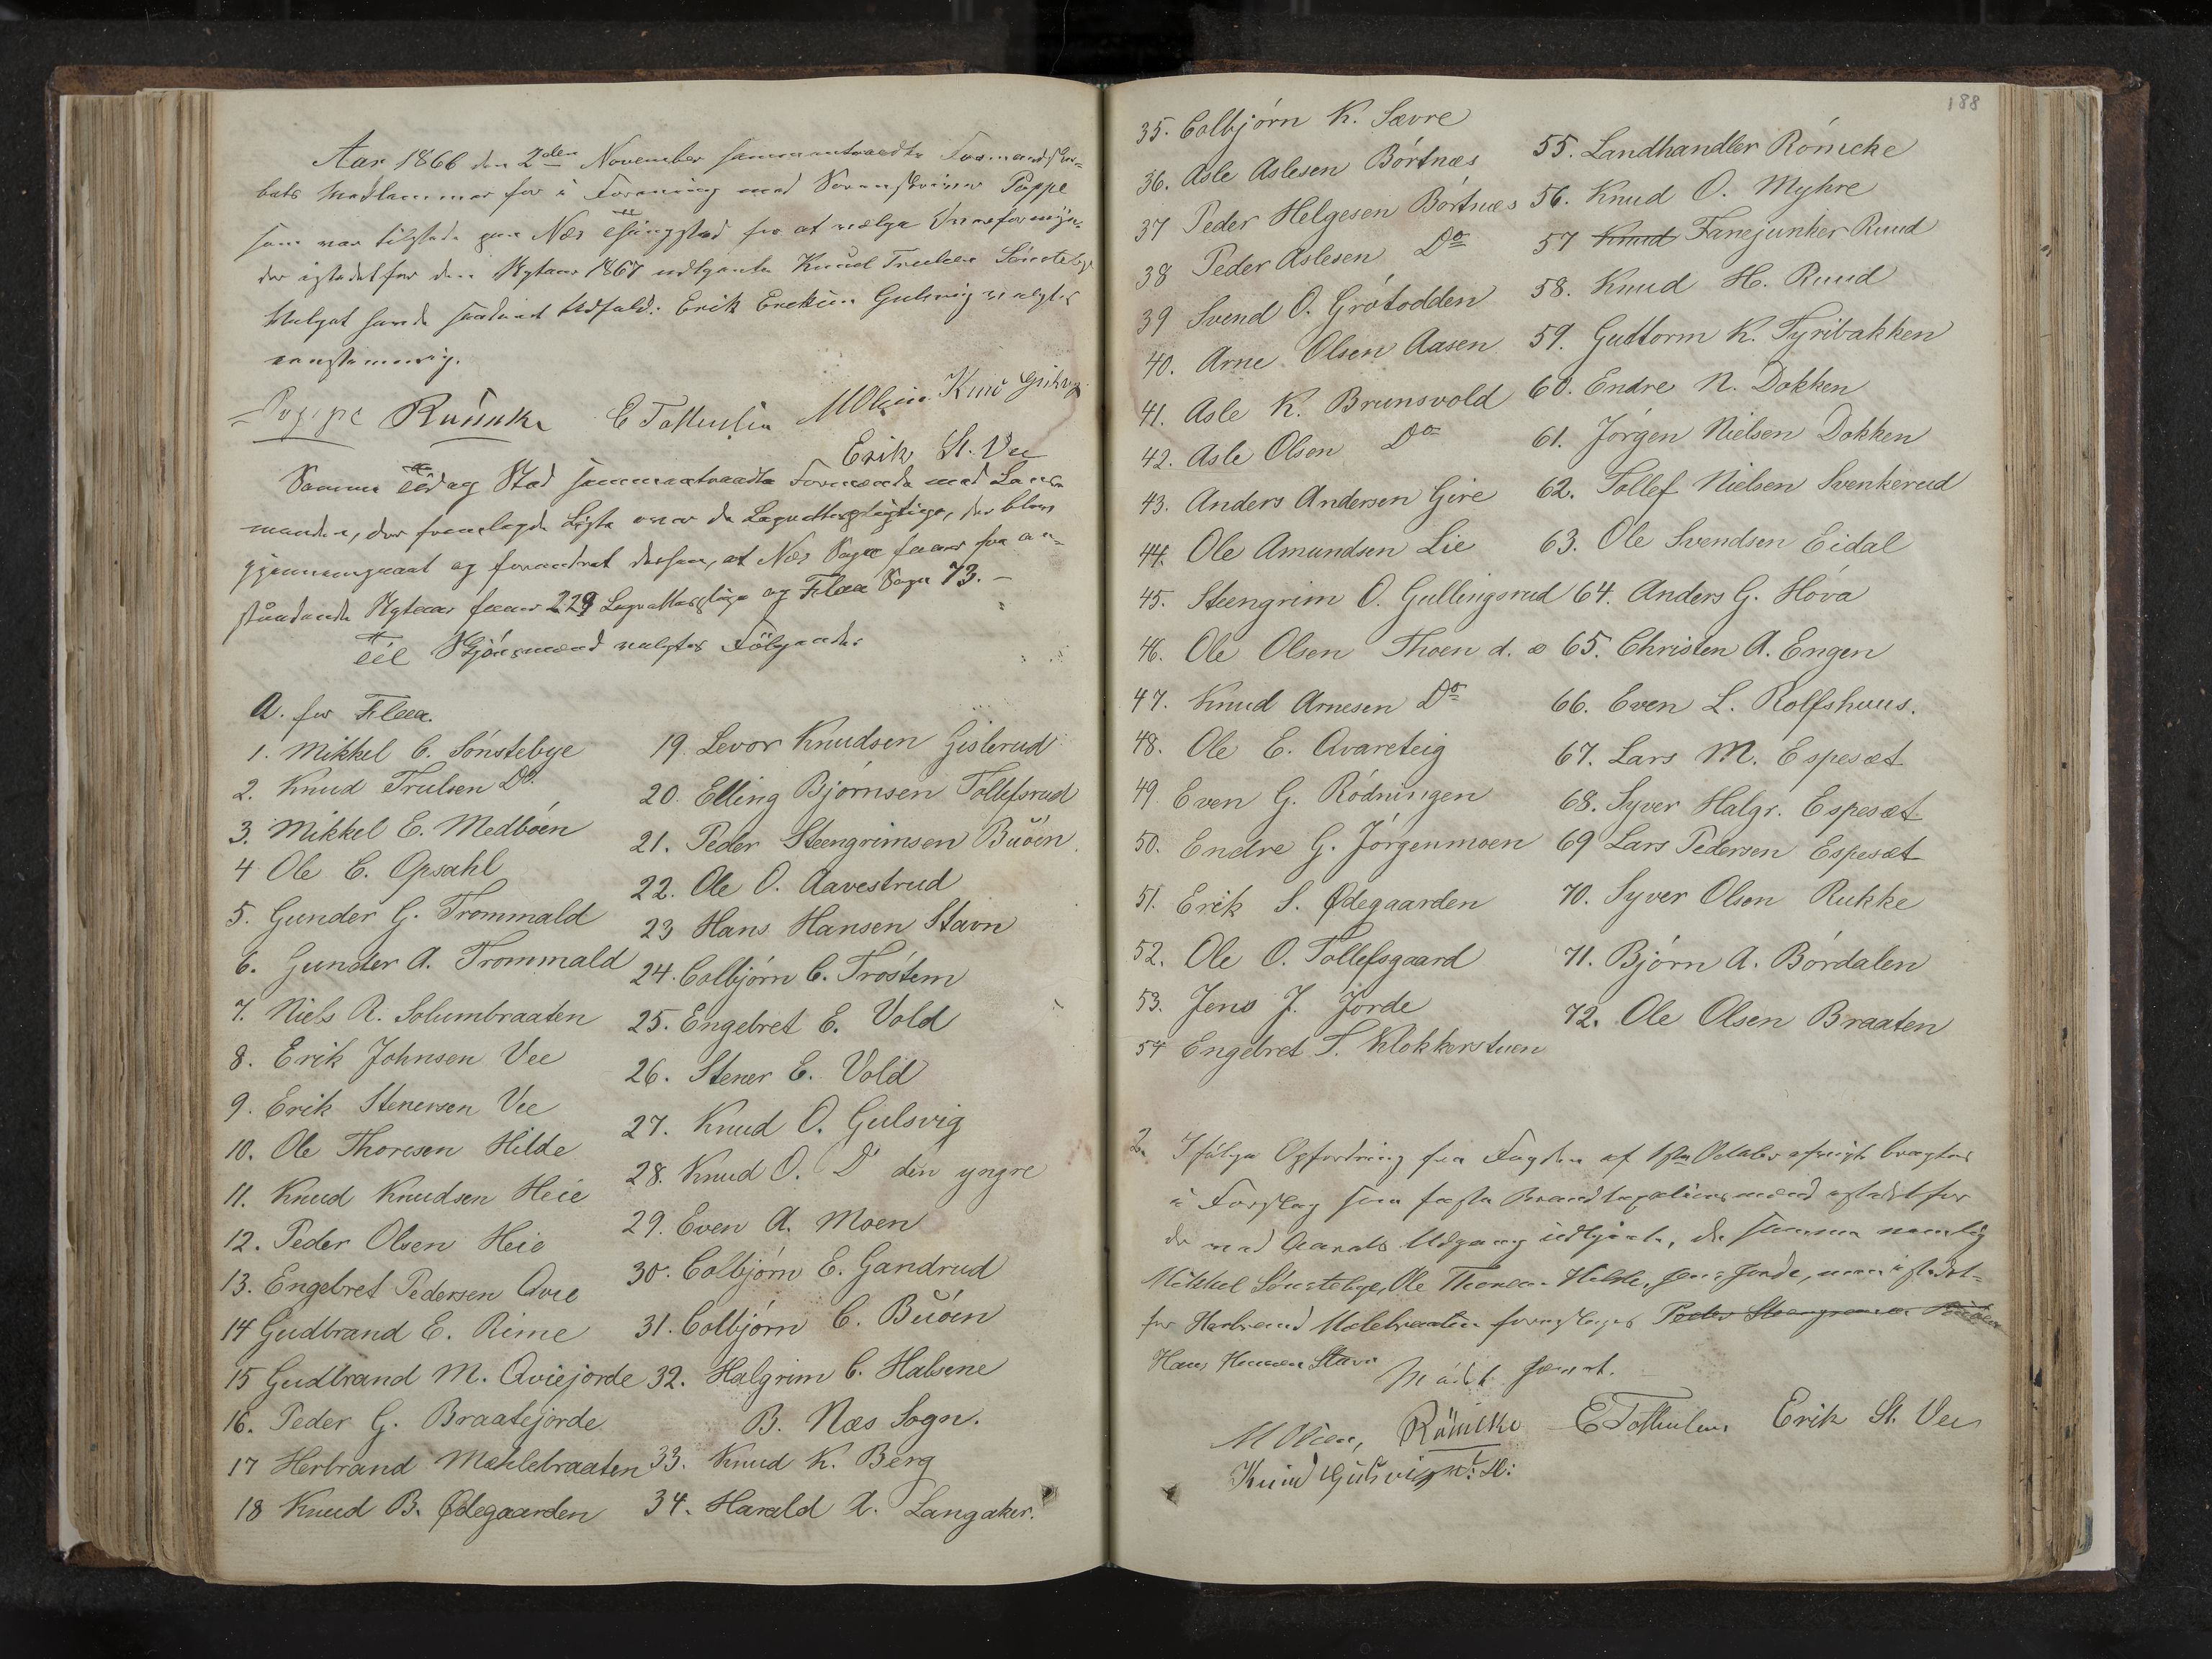 Aar 1866 den 2den November sammentraadte Formandska-
bets Medlemmer for i Forening med Sorenskriver Poppe
som var tilstede paa Næs Thingsted for at vælge Overformyn-
der istedetfor den Nytaar 1867 udtgaaende Knud Trulsen Sönsteby
Valget havde saadant Udfald: Erik Ericksen Gulsvig valgtes
eenstemmig.
Poppe Römcke E Tollersen M Olsen Knud Gulsvig
Erik St. Vee
Samme Tid og Sted sammentraadte Formændene med Lens-
manden, der fremlagde Liste over de Lagrettespligtige, der blev
gjennemgaaet og forandret derhen, at Næs Sogn faaer fra an-
staaende Nytaar faaer 229 Lagrettespligtige og Flaa Sogn 73. -
Til Skjönsmænd valgtes Fölgende:
A. for Flaa.
1. Mikkel C. Sónstebye
2. Knud Trulsen Do.
3. Mikkel E. Medbóen
4 Ole C. Opsahl
5. Gunder G. Trommald
6. Gunder A. Trommald
7. Niels R. Solumbraaten
8. Erik Johnsen Vee
9. Erik Stenersen Vee
10. Ole Thoresen Hilde
11. Knud Knudsen Heie
12. Peder Olsen Heie
13. Engebret Pedersen Avie
14 Gudbrand E. Rime
15 Gudbrand M. Aviejorde
16. Peder G. Braatejorde
17 Herbrand Mæhlebraaten
18 Knud B. Ødegaarden
19. Levor Knudsen Gislerud
20. Elling Bjórnsen Tollefsrud
21. Peder Steengrimsen Buóen
22. Ole O. Aavestrud
23 Hans Hansen Stavn
24. Colbjórn C. Tróstem
25. Engebret E. Vold
26. Stener E. Vold
27. Knud O. Gulsvig
28. Knud O. Do den yngre
29. Even A. Moen
30. Colbjórn E. Gandrud
31. Colbjórn C. Buóen
32. Halgrim C. Halsene
B. Næs Sogn.
33. Knud K. Berg
34. Harald A. Langaker.
188
35. Colbjórn K. Sævre
36. Asle Aslesen Bórtnæs
37 Peder Helgesen Bórtnæs
38 Peder Aslesen Do
39 Svend O. Grótodden
40. Arne Olsen Aasen
41. Asle K. Brunsvold
42. Asle Olsen Do
43. Anders Andersen Gire
44. Ole Amundsen Lie
45. Steengrim O. Gullingsrud
46. Ole Olsen Thoen d. æ
47. Knud Arnesen Do
48. Ole E. Qvareteig
49 Even G. Ródningen
50. Endre G. Jórgenmoen
51. Erik S. Ødegaarden
52. Ole O. Tollefsgaard
53. Jens J. Jorde
54 Engebret T. Klokkerstuen
55. Landhandler Rómcke
56. Knud O. Myhre
57 Knud Fanejunker Ruud
58. Knud H. Ruud
59. Guttorm K. Tyribakken
60. Endre N. Dokken
61. Jórgen Nielsen Dokken
62. Tollef Nielsen Svenkerud
63. Ole Svendsen Eidal
64. Anders G. Hóva
65. Christen A. Engen
66. Even L. Rolfshuus.
67. Lars M. Espesæt
68. Syver Halgr. Espesæt
69 Lars Pedersen Espesæt
70. Syver Olsen Rukke
71. Bjórn A. Bórdalen
72. Ole Olsen Braaten
2. Ifölge Opfordring fra Fogden af 1ste Oktober bragtes
i Forslag som faste Brandtaxationsmænd istedetfor
de ved Aarets Udgang udtjente, de samme nemlig
Mikkel Sönstebye, Ole Thoresen Hilde, Jens Jorde, men istedet-
for Herbrand Mælebraaten foreslages Peder Steengrimsen Buöen
Hans Hansen Stavn
Mödet hævet.
M Olsen, Römcke E Tollersen Erik St. Vee
Knud Gulsvig